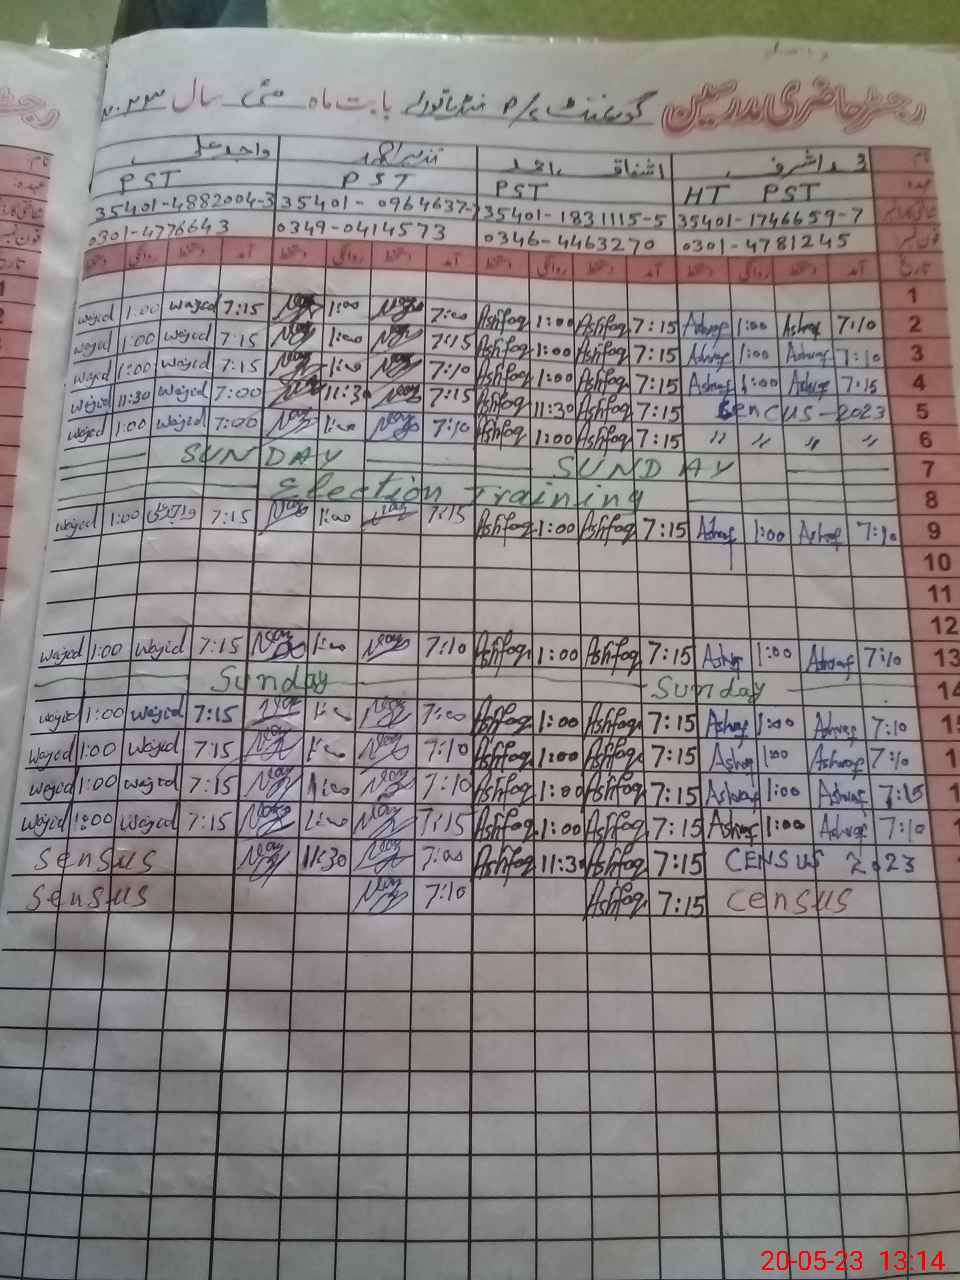 رجسٹر حاضری مدرسین گورنمنٹ P/S بابت ماہ مئی سال ۲۰۲۳
نام: اشرف اشفاق احمد واجد علی
عہدہ HT PST PST PST PST
35401-1746659-7 35401-1831115-5 35401-0964637- 35401-4882004-3
فون نمبر 0301-4781245 0346-4463270 0349-0414573 0301-4776643
تاریخ آمد دستخط روانگی دستخط آمد دستخط روانگی دستخط آمد دستخط روانگی دستخط آمد دستخط روانگی دستخط
1
wajid 1:00 wajid 7:15 1:00 7:00 Ashfaq 1:00 Ashfaq 7:15 Ashraf 1:00 Ashraf 7:10 2
wajid 1:00 wajid 7:15 1:00 7:15 Ashfaq 1:00 Ashfaq 7:15 Ashraf 1:00 Ashraf 7:10 3
wajid 1:00 wajid 7:15 1:00 7:10 Ashfaq 1:00 Ashfaq 7:15 Ashraf 1:00 Ashraf 7:15 4
wajid 11:30 wajid 7:00 11:30 7:15 Ashfaq 11:30 Ashfaq 7:15 Cencus-2023 5
wajid 1:00 wajid 7:00 1:00 7:10 Ashfaq 1:00 Ashfaq 7:15 " " " " 6
SUNDAY SUNDAY 7
Election Training 8
wajid 1:00 7:15 1:00 7:15 Ashfaq 1:00 Ashfaq 7:15 Ashraf 1:00 Ashraf 7:10 9
10
11
12
wajid 1:00 wajid 7:15 1:00 7:10 Ashfaq 1:00 Ashfaq 7:15 Ashraf 1:00 Ashraf 7:10 13
Sunday Sunday 14
wajid 1:00 wajid 7:15 1:00 7:00 Ashfaq 1:00 Ashfaq 7:15 Ashraf 1:00 Ashraf 7:10
wajid 1:00 wajid 7:15 1:00 7:10 Ashfaq 1:00 Ashfaq 7:15 Ashraf 1:00 Ashraf 7:10
wajid 1:00 wajid 7:15 1:00 7:10 Ashfaq 1:00 Ashfaq 7:15 Ashraf 1:00 Ashraf 7:15
wajid 1:00 wajid 7:15 1:00 7:15 Ashfaq 1:00 Ashfaq 7:15 Ashraf 1:00 Ashraf 7:10
Sensus 11:30 7:00 Ashfaq 11:30 Ashfaq 7:15 CENSUS 2023
Sensus 7:10 Ashfaq 7:15 Census
20-05-23 13:14